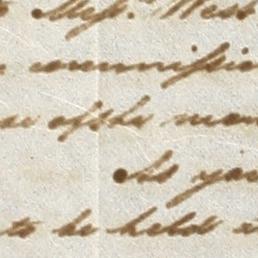 Mess. West
commissio
of the man
As you
to be held